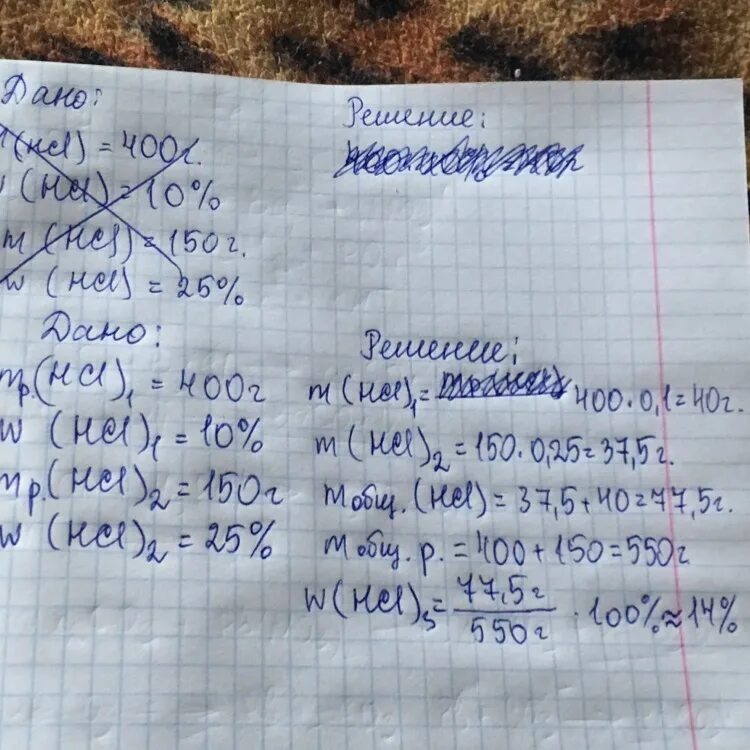 Дано:
(HCl) = 400г.
(HCl) = 10%
m (HCl) = 150г.
w (HCl) = 25%
Решение:
Дано:
mр.(HCl)₁ = 400г
w (HCl)₁ = 10%
mр.(HCl)₂ = 150г
w (HCl)₂ = 25%
Решение:
m (HCl)₁ = 400 · 0,1 = 40г.
m (HCl)₂ = 150 · 0,25 = 37,5г.
mобщ. (HCl) = 37,5 + 40 = 77,5г.
mобщ. р. = 400 + 150 = 550г
w (HCl)₃ = 77,5г / 550г · 100% ≈ 14%